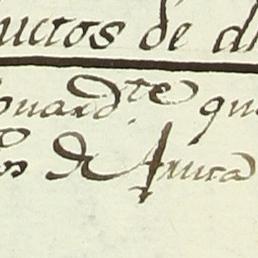 uctos de d
guard.te qu
os de Aruca